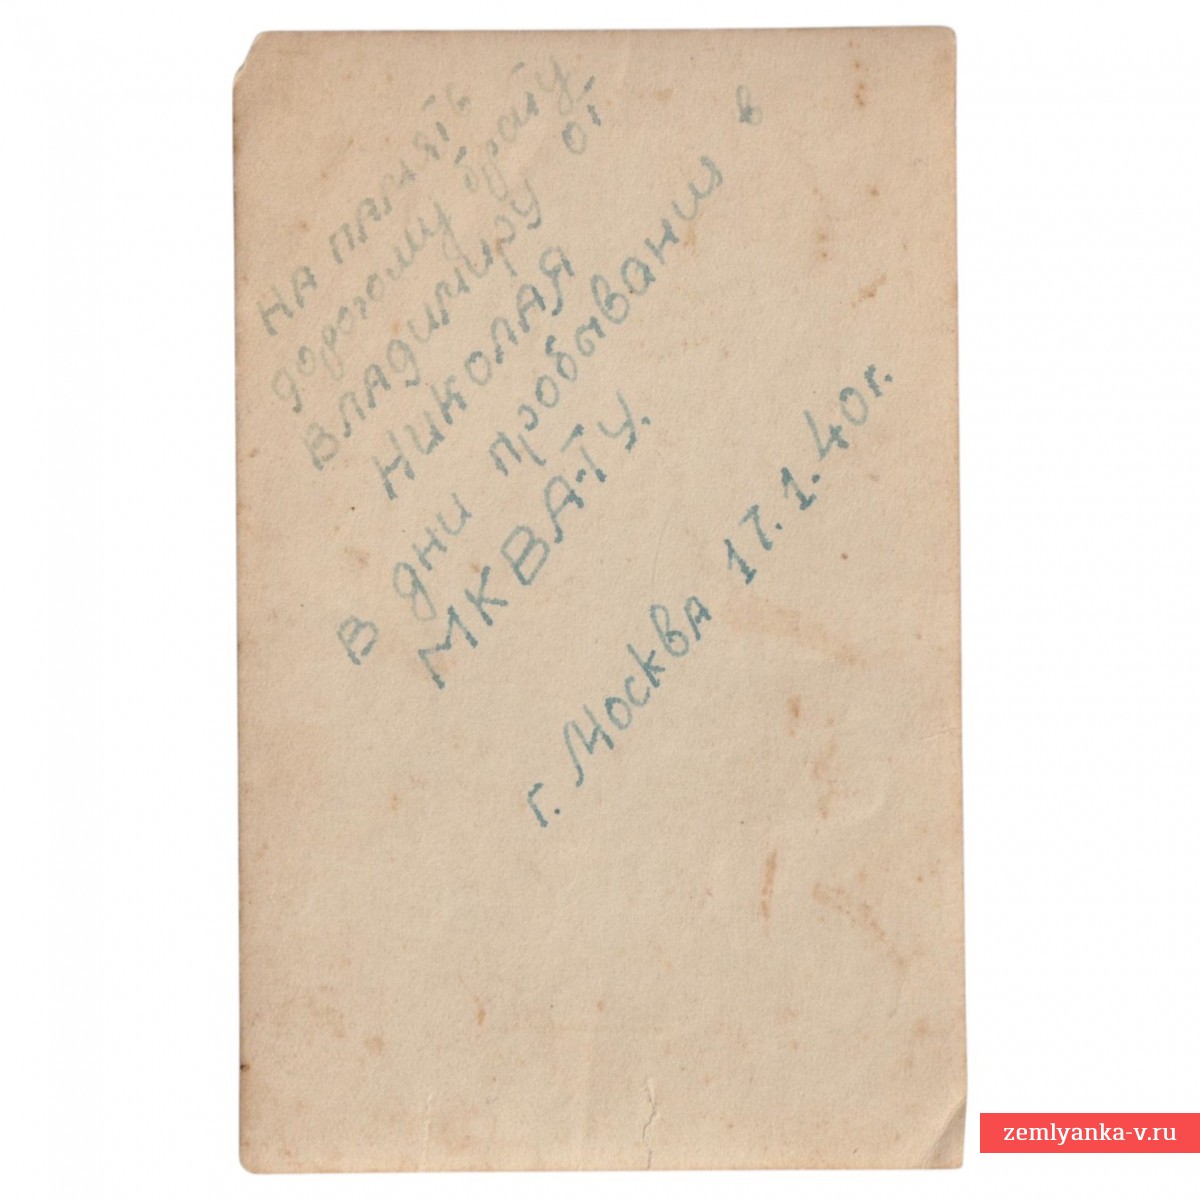 НА ПАМЯТЬ
дорогому брату
ВЛАДИМИРУ от
НИКОЛАЯ
В дни пробывании в
МКВАТУ.
г. Москва 17.1.40г.
zemlyanka-v.ru